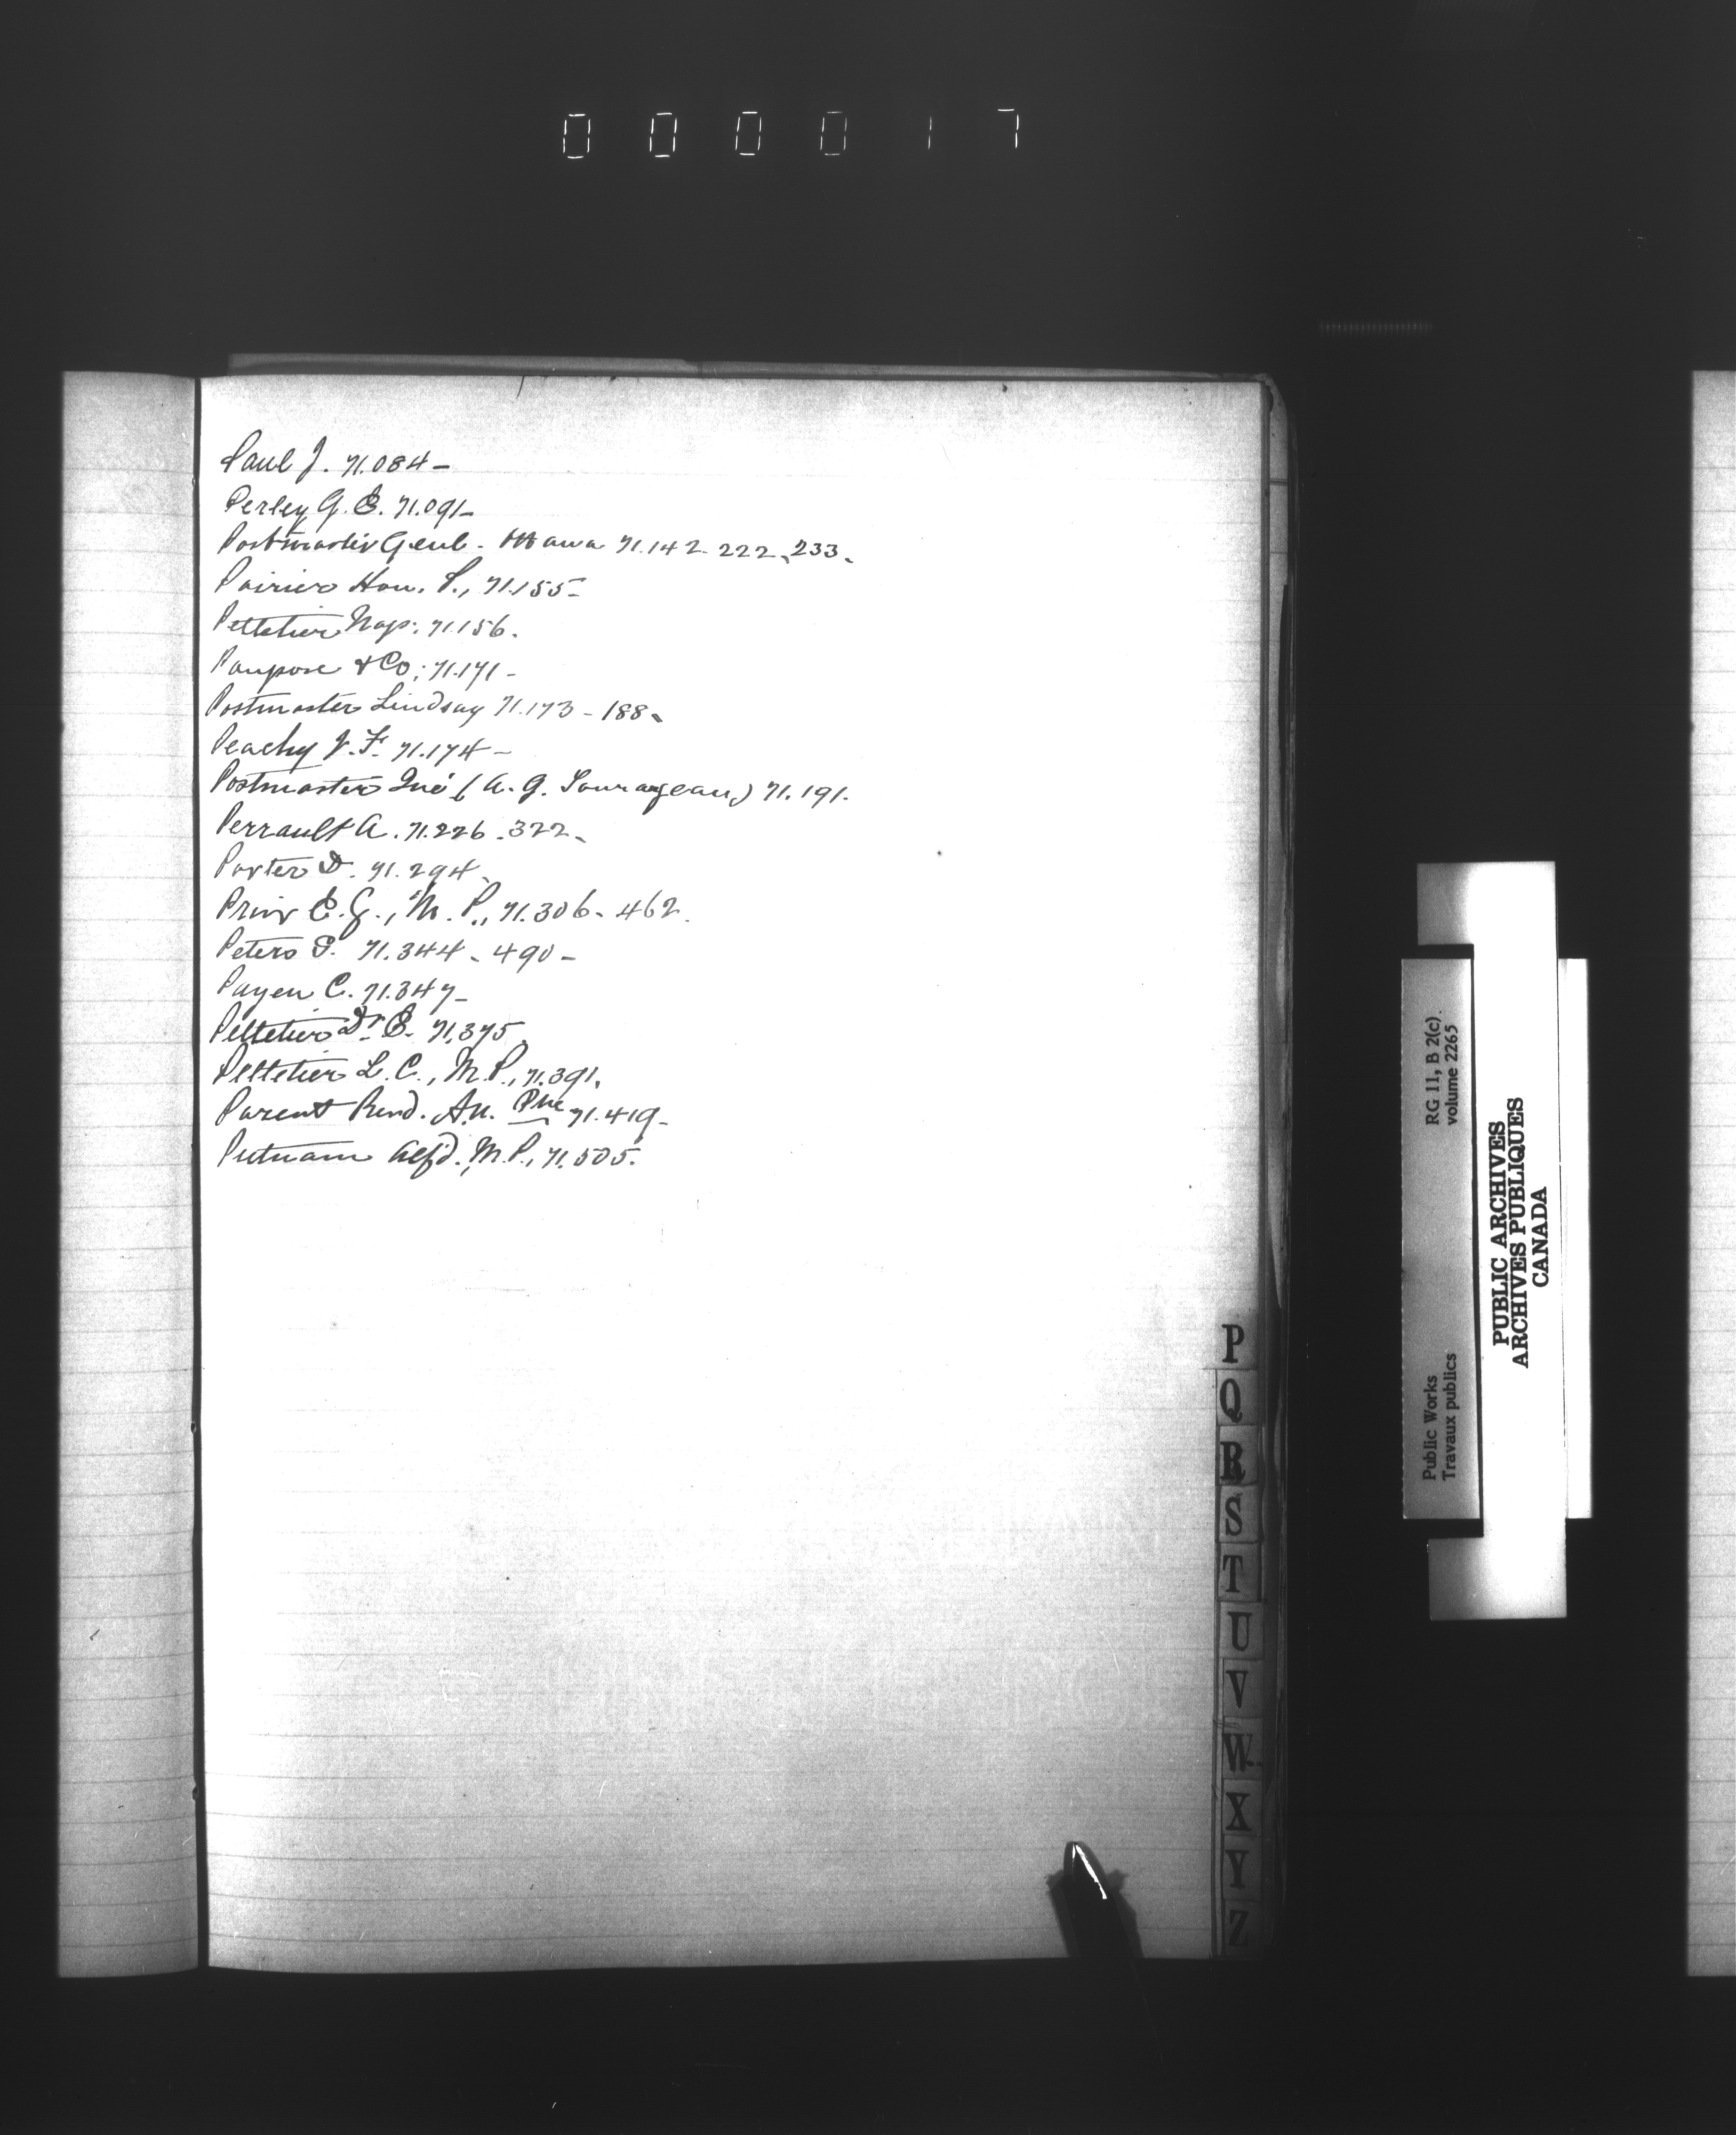 000017
Paul J. 71.084-
Perley G. E. 71.091-
Postmaster Genl. Ottawa 71.142-222, 233.
Poirier Hon. P., 71.155-
Pelletier Nap. 71.156.
& Co; 71.171-
Postmaster Lindsay 71.173-188.
Peachy J. F. 71.174-
Postmaster Que (A. G. Tourangeau) 71.191.
Perrault A. 71.226-322.
Porter D. 71.294.
Prior E. G., M. P., 71.306-462.
Peters S. 71.344-490-
Payen C. 71.347-
Pelletier Dr. E. 71.375.
Pelletier L. C., M. P., 71.391.
Parent Revd. An. Pre 71.419-
Putnam Alfd. M. P., 71.505.
P
Q
R
S
T
U
V
W
X
Y
Z
Public Works RG 11, B 2(c).
Travaux publics volume 2265
PUBLIC ARCHIVES
ARCHIVES PUBLIQUES
CANADA